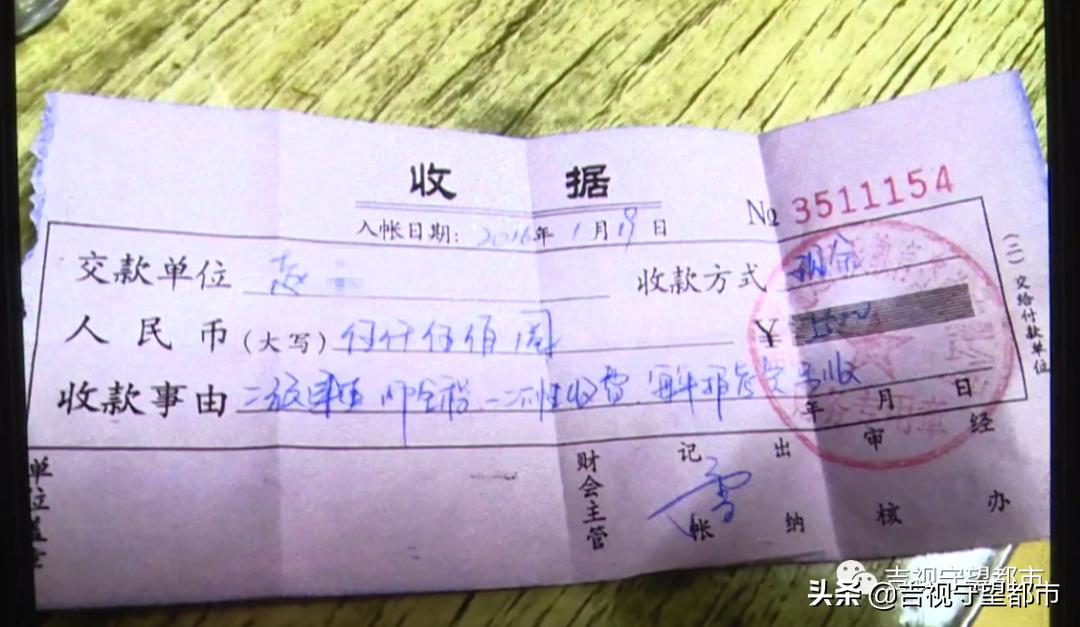 收 据
入帐日期：2016年 1月 19日
№ 3511154
交款单位 赵
收款方式 现金
人民币(大写) 伍仟伍佰圆
¥
收款事由 一次性收费
年 月 日
(二)交给付款单位
单位盖章
财会主管
记帐 雪
出纳
审核
经办
吉视守望都市
头条 @吉视守望都市